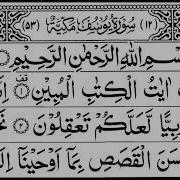 (١٢) سُوْرَةُ يُوْسُفَ مَكِّيَّةٌ (٥٣)
سْمِ اللّٰهِ الرَّحْمٰنِ الرَّحِيْمِ
اٰيٰتُ الْكِتٰبِ الْمُبِيْنِ ١
بِيًّا لَّعَلَّكُمْ تَعْقِلُوْنَ ٢ نَحْ
سَنَ الْقَصَصِ بِمَاۤ اَوْحَيْنَاۤ اِلَ